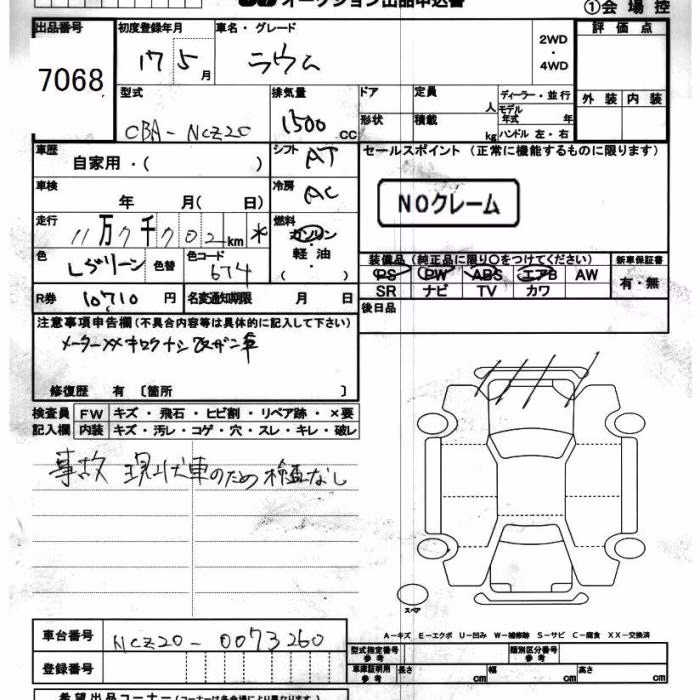 オークション出品申込書 ①会場控
出品番号 初度登録年月 車名・グレード 2WD・4WD 評価点
7068 17 5月 ラウム
型式 排気量 ドア 定員 人 ディーラー・並行 外装 内装
CBA-NCZ20 1500 cc 形状 積載 kg モデル年式 年 ハンドル 左・右
車歴 自家用・( ) シフト AT セールスポイント (正常に機能するものに限ります)
車検 年 月( 日) 冷房 AC NOクレーム
走行 11万7千702km * 燃料 ガソリン 軽油 ( )
色 Lグリーン 色替 色コード 674 装備品(純正品に限り○をつけてください) 新車保証書
PS PW ABS エアB AW 有・無
R券 10710円 名変通知期限 月 日 SR ナビ TV カワ
後日品
注意事項申告欄(不具合内容等は具体的に記入して下さい)
メーターXX キロクナシ 改ザン車
修復歴 有 〔箇所 〕
検査員記入欄 FW キズ・飛石・ヒビ割・リペア跡・×要
内装 キズ・汚レ・コゲ・穴・スレ・キレ・破レ
事故 現状車のため検査なし
スペア
A-キズ E-エクボ U-凹み W-補修跡 S-サビ C-腐食 XX-交換済
車台番号 NCZ20-0073260 型式指定番号 参考 類別区分番号 参考
登録番号 車庫証明用 参考 長さ cm 幅 cm 高さ cm
希望出品コーナー(コーナーは各会場により異なります)